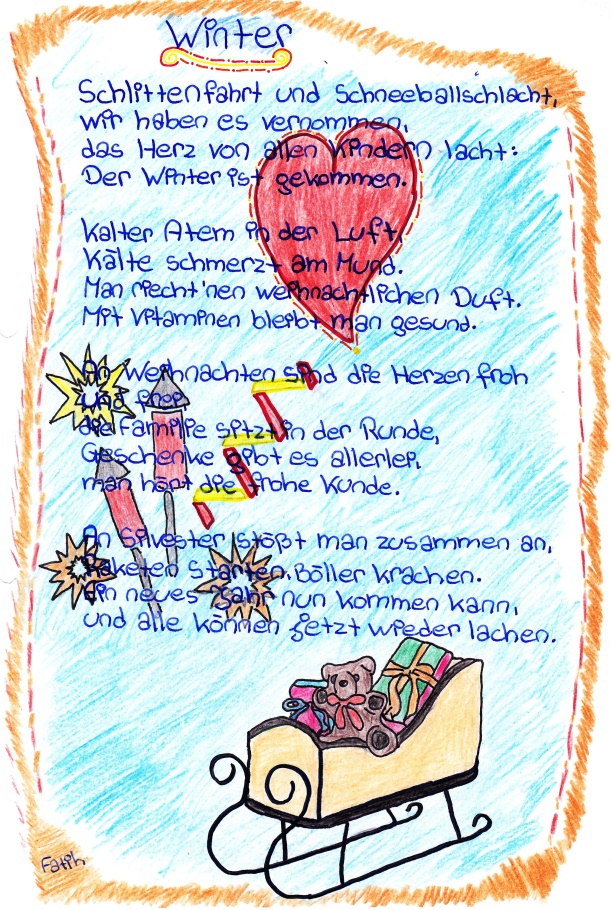 Winter
Schlittenfahrt und Schneeballschlacht,
wir haben es vernommen,
das Herz von allen Kindern lacht:
Der Winter ist gekommen.
Kalter Atem in der Luft,
Kälte schmerzt am Mund.
Man riecht 'nen weihnachtlichen Duft.
Mit Vitaminen bleibt man gesund.
An Weihnachten sind die Herzen froh
und frei,
die Familie sitzt in der Runde,
Geschenke gibt es allerlei,
man hört die frohe Kunde.
An Silvester stößt man zusammen an,
Raketen starten, Böller krachen.
Ein neues Jahr nun kommen kann,
und alle können jetzt wieder lachen.
Fatih